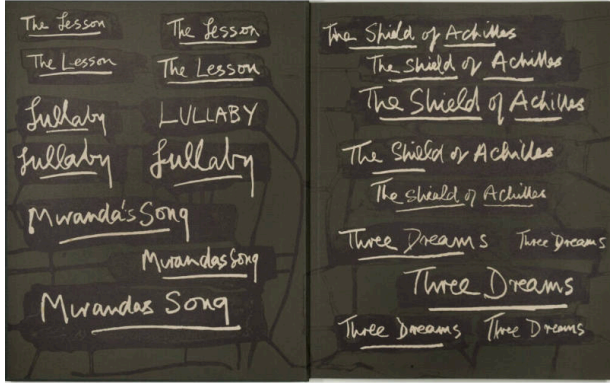 The Lesson
The Lesson
The Lesson
The Lesson
Lullaby
LULLABY
Lullaby
Lullaby
Miranda's Song
Mirandas Song
Mirandas Song
The Shield of Achilles
The Shield of Achilles
The Shield of Achilles
The Shield of Achilles
The Shield of Achilles
Three Dreams
Three Dreams
Three Dreams
Three Dreams
Three Dreams